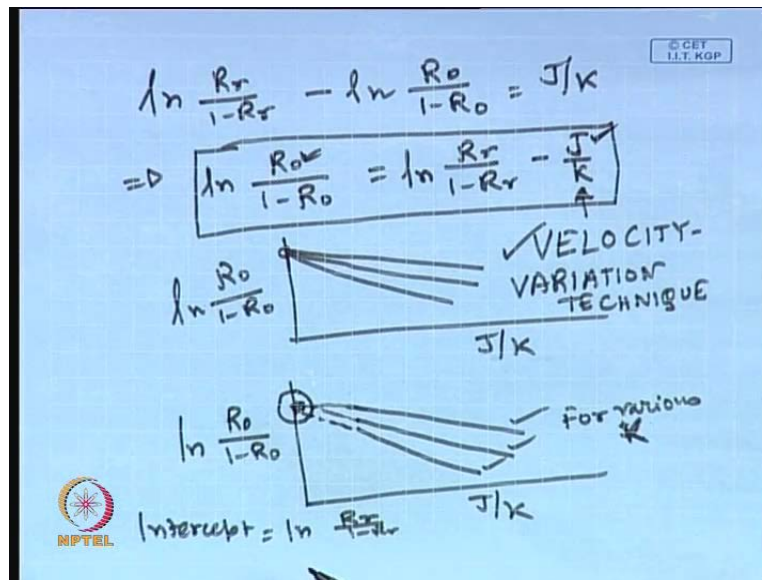 © CET
I.I.T. KGP
ln Rr/1-Rr - ln Ro/1-Ro = J/K
=> ln Ro/1-Ro = ln Rr/1-Rr - J/K
VELOCITY-
VARIATION
TECHNIQUE
ln Ro/1-Ro
J/K
ln Ro/1-Ro
For various
K
J/K
Intercept = ln Rr/1-Rr
NPTEL